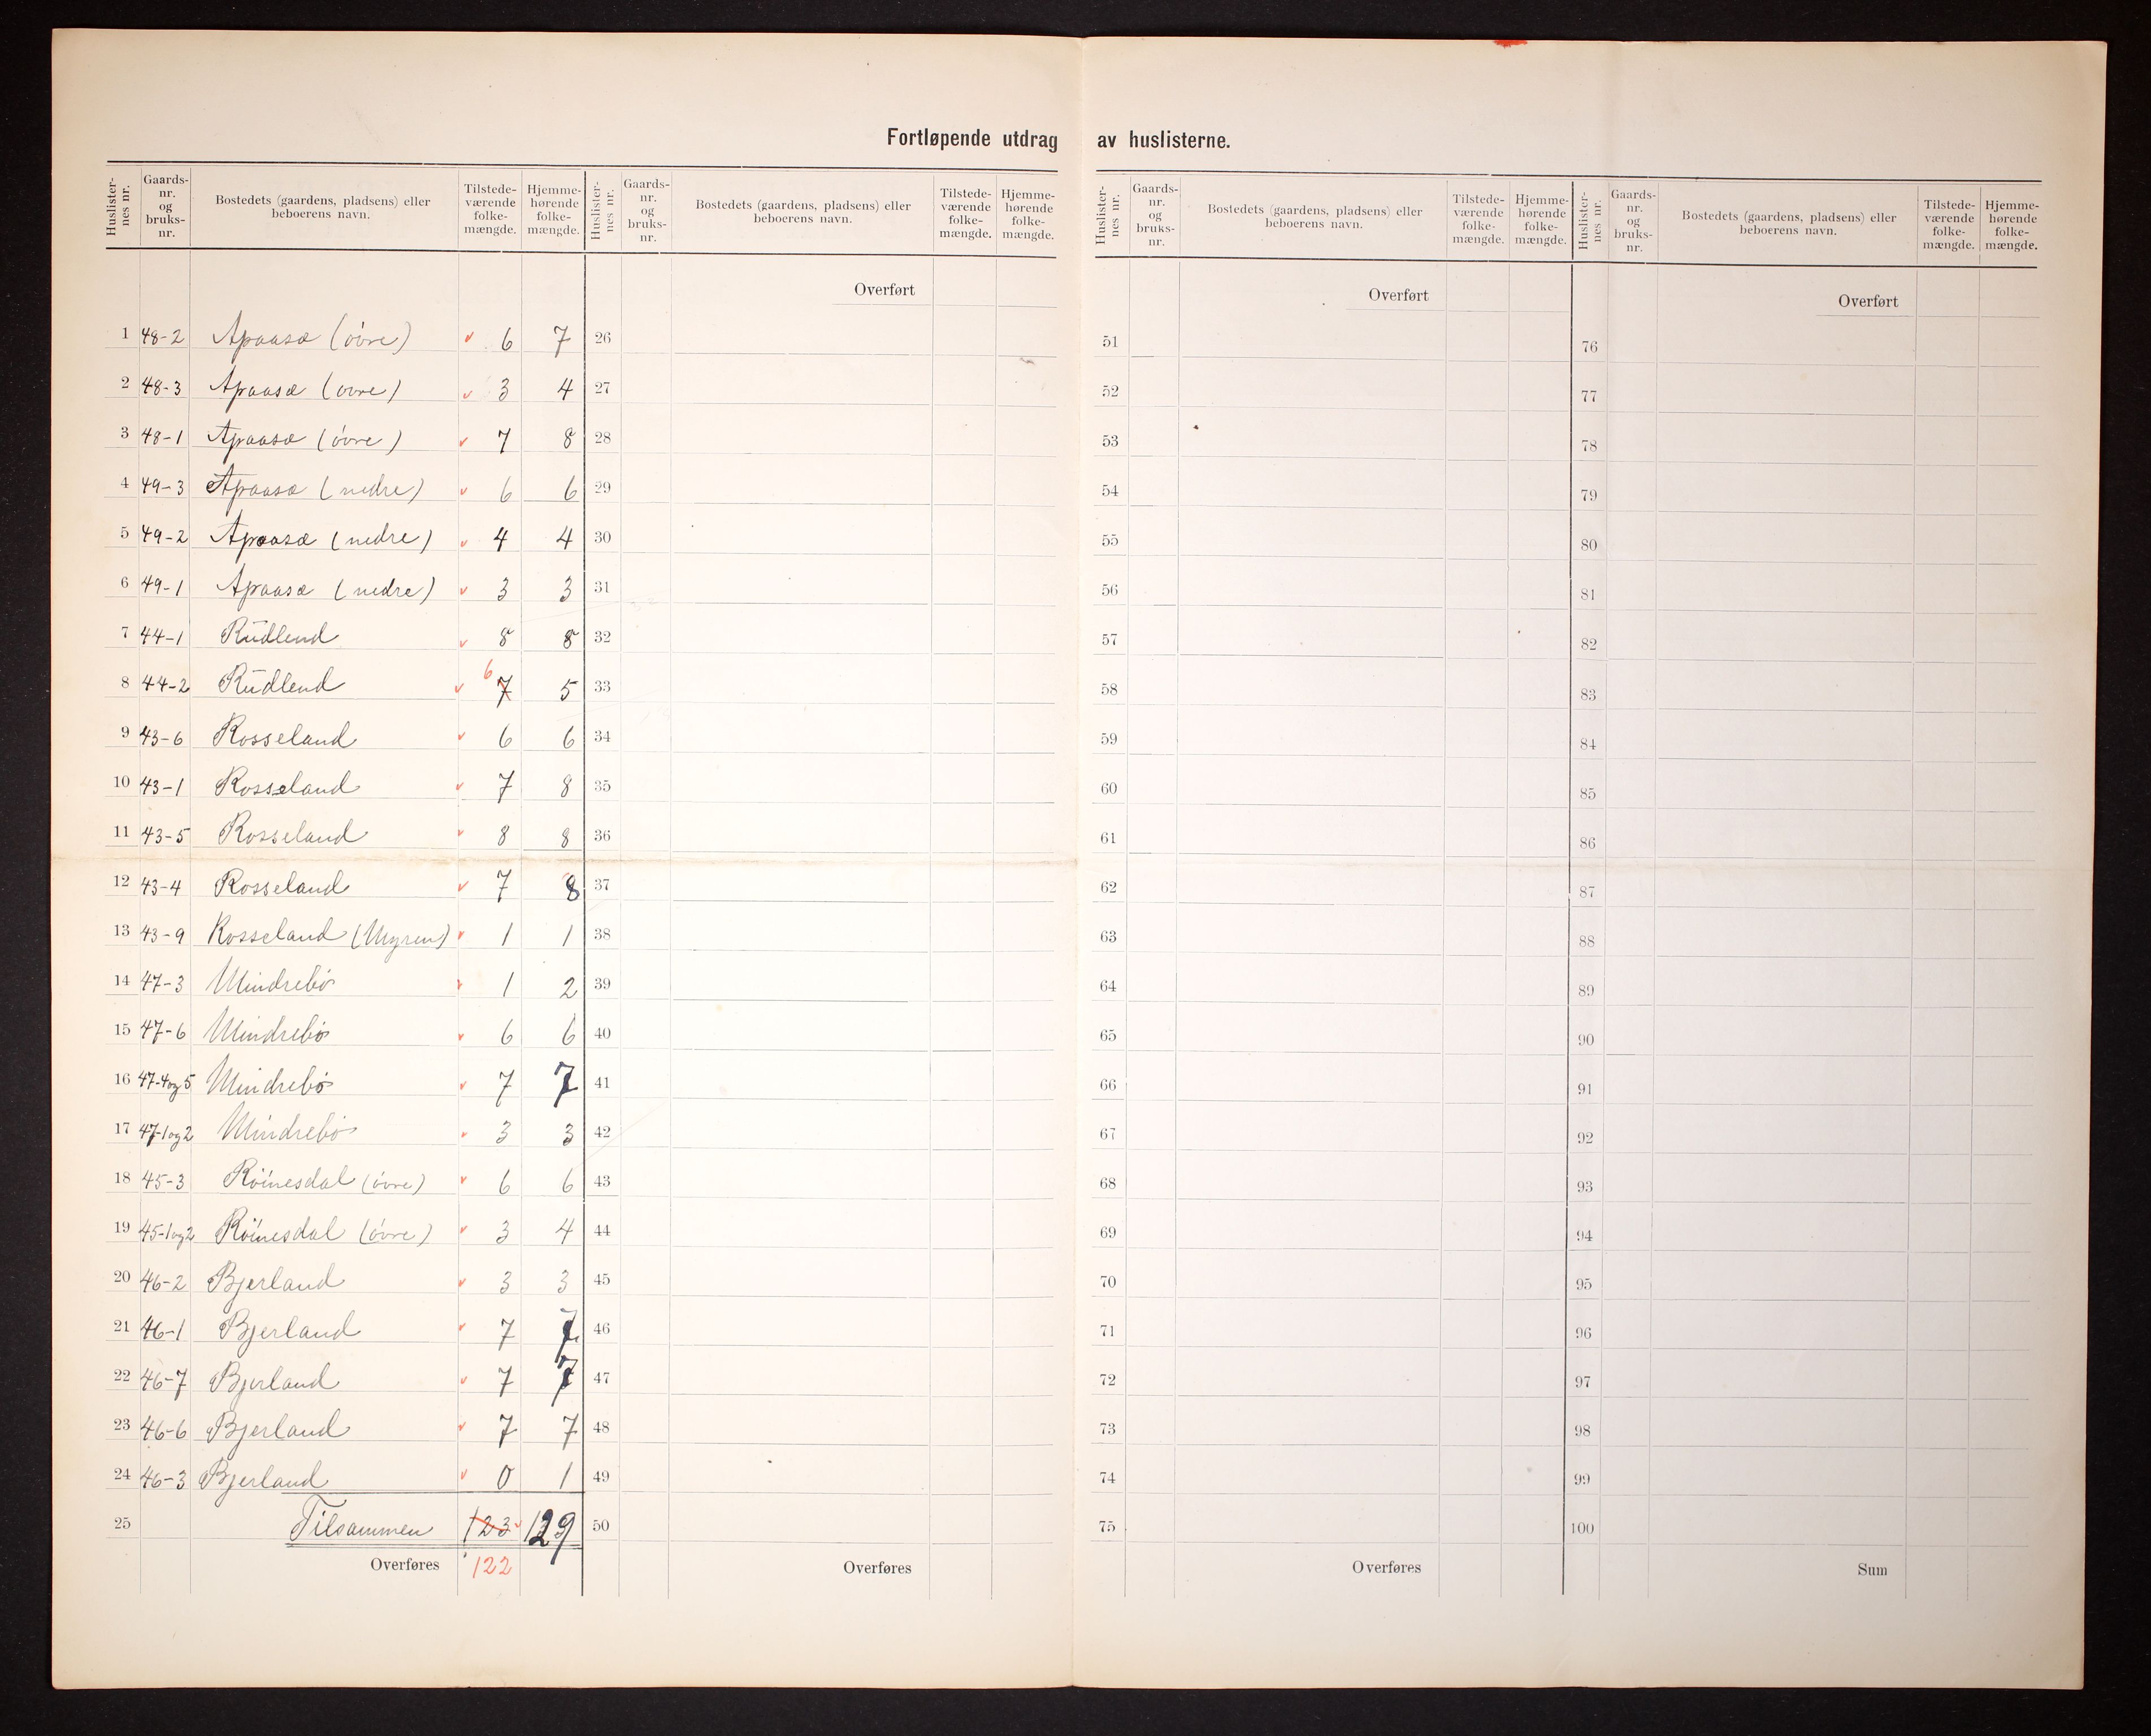 Fortløpende utdrag av huslisterne.
Huslister-nes nr. Gaards-nr. og bruks-nr. Bostedets (gaardens, pladsens) eller beboerens navn. Tilstede-værende folke-mængde. Hjemme-hørende folke-mængde. Huslister-nes nr. Gaards-nr. og bruks-nr. Bostedets (gaardens, pladsens) eller beboerens navn. Tilstede-værende folke-mængde. Hjemme-hørende folke-mængde. Huslister-nes nr. Gaards-nr. og bruks-nr. Bostedets (gaardens, pladsens) eller beboerens navn. Tilstede-værende folke-mængde. Hjemme-hørende folke-mængde. Huslister-nes nr. Gaards-nr. og bruks-nr. Bostedets (gaardens, pladsens) eller beboerens navn. Tilstede-værende folke-mængde. Hjemme-hørende folke-mængde.
Overført Overført Overført
1 48-2 Apaasæ (övre) 6 7 26 51 76
2 48-3 Apaasæ (ovre) 3 4 27 52 77
3 48-1 Apaasæ (övre) 7 8 28 53 78
4 49-3 Apaasæ (nedre) 6 6 29 54 79
5 49-2 Apaasæ (nedre) 4 4 30 55 80
6 49-1 Apaasæ (nedre) 3 3 31 56 81
7 44-1 Rüdlend 8 8 32 57 82
8 44-2 Rüdlend 6 7 5 33 58 83
9 43-6 Rosseland 6 6 34 59 84
10 43-1 Rosseland 7 8 35 60 85
11 43-5 Rosseland 8 8 36 61 86
12 43-4 Rosseland 7 8 37 62 87
13 43-9 Rosseland (Myren) 1 1 38 63 88
14 47-3 Mindrebö 1 2 39 64 89
15 47-6 Mindrebö 6 6 40 65 90
16 47-4og5 Mindrebö 7 7 41 66 91
17 47-1og2 Mindrebö 3 3 42 67 92
18 45-3 Röinesdal (övre) 6 6 43 68 93
19 45-1og2 Röinesdal (övre) 3 4 44 69 94
20 46-2 Bjerland 3 3 45 70 95
21 46-1 Bjerland 7 7 46 71 96
22 46-7 Bjerland 7 7 47 72 97
23 46-6 Bjerland 7 7 48 73 98
24 46-3 Bjerland 0 1 49 74 99
25 Tilsammen 123 129 50 75 100
Overføres 122 Overføres Overføres Sum